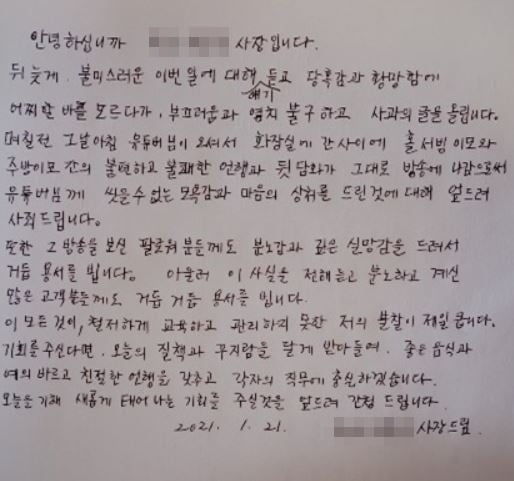 안녕하십니까 사장입니다.
뒤늦게. 불미스러운 이번일에 대해 얘기 듣고 당혹감과 황망함에
어찌할 바를 모르다가, 부끄러움과 염치 불구하고 사과의 글을 올립니다.
며칠전 그날아침 유튜버님이 오셔서 화장실에 간 사이에 홀서빙이모와
주방이모 간의 불편하고 불쾌한 언행과 뒷담화가 그대로 방송에 나감으로써
유튜버님께 씻을수없는 모욕감과 마음의 상처를 드린것에 대해 엎드려
사죄드립니다.
또한 그 방송을 보신 팔로워 분들께도 분노감과 깊은 실망감을 드려서
거듭 용서를 빕니다. 아울러 이 사실을 전해듣고 분노하고 계신
많은 고객분들께도 거듭 거듭 용서를 빕니다.
이 모든것이, 철저하게 교육하고 관리하지 못한 저의 불찰이 제일 큽니다.
기회를 주신다면, 오늘의 질책과 꾸지람을 달게 받아들여. 좋은음식과
예의 바르고 친절한 언행을 갖추고 각자의 직무에 충실하겠습니다.
오늘을 기해 새롭게 태어나는 기회를 주실것을 엎드려 간청 드립니다
2021. 1. 21. 사장드림.